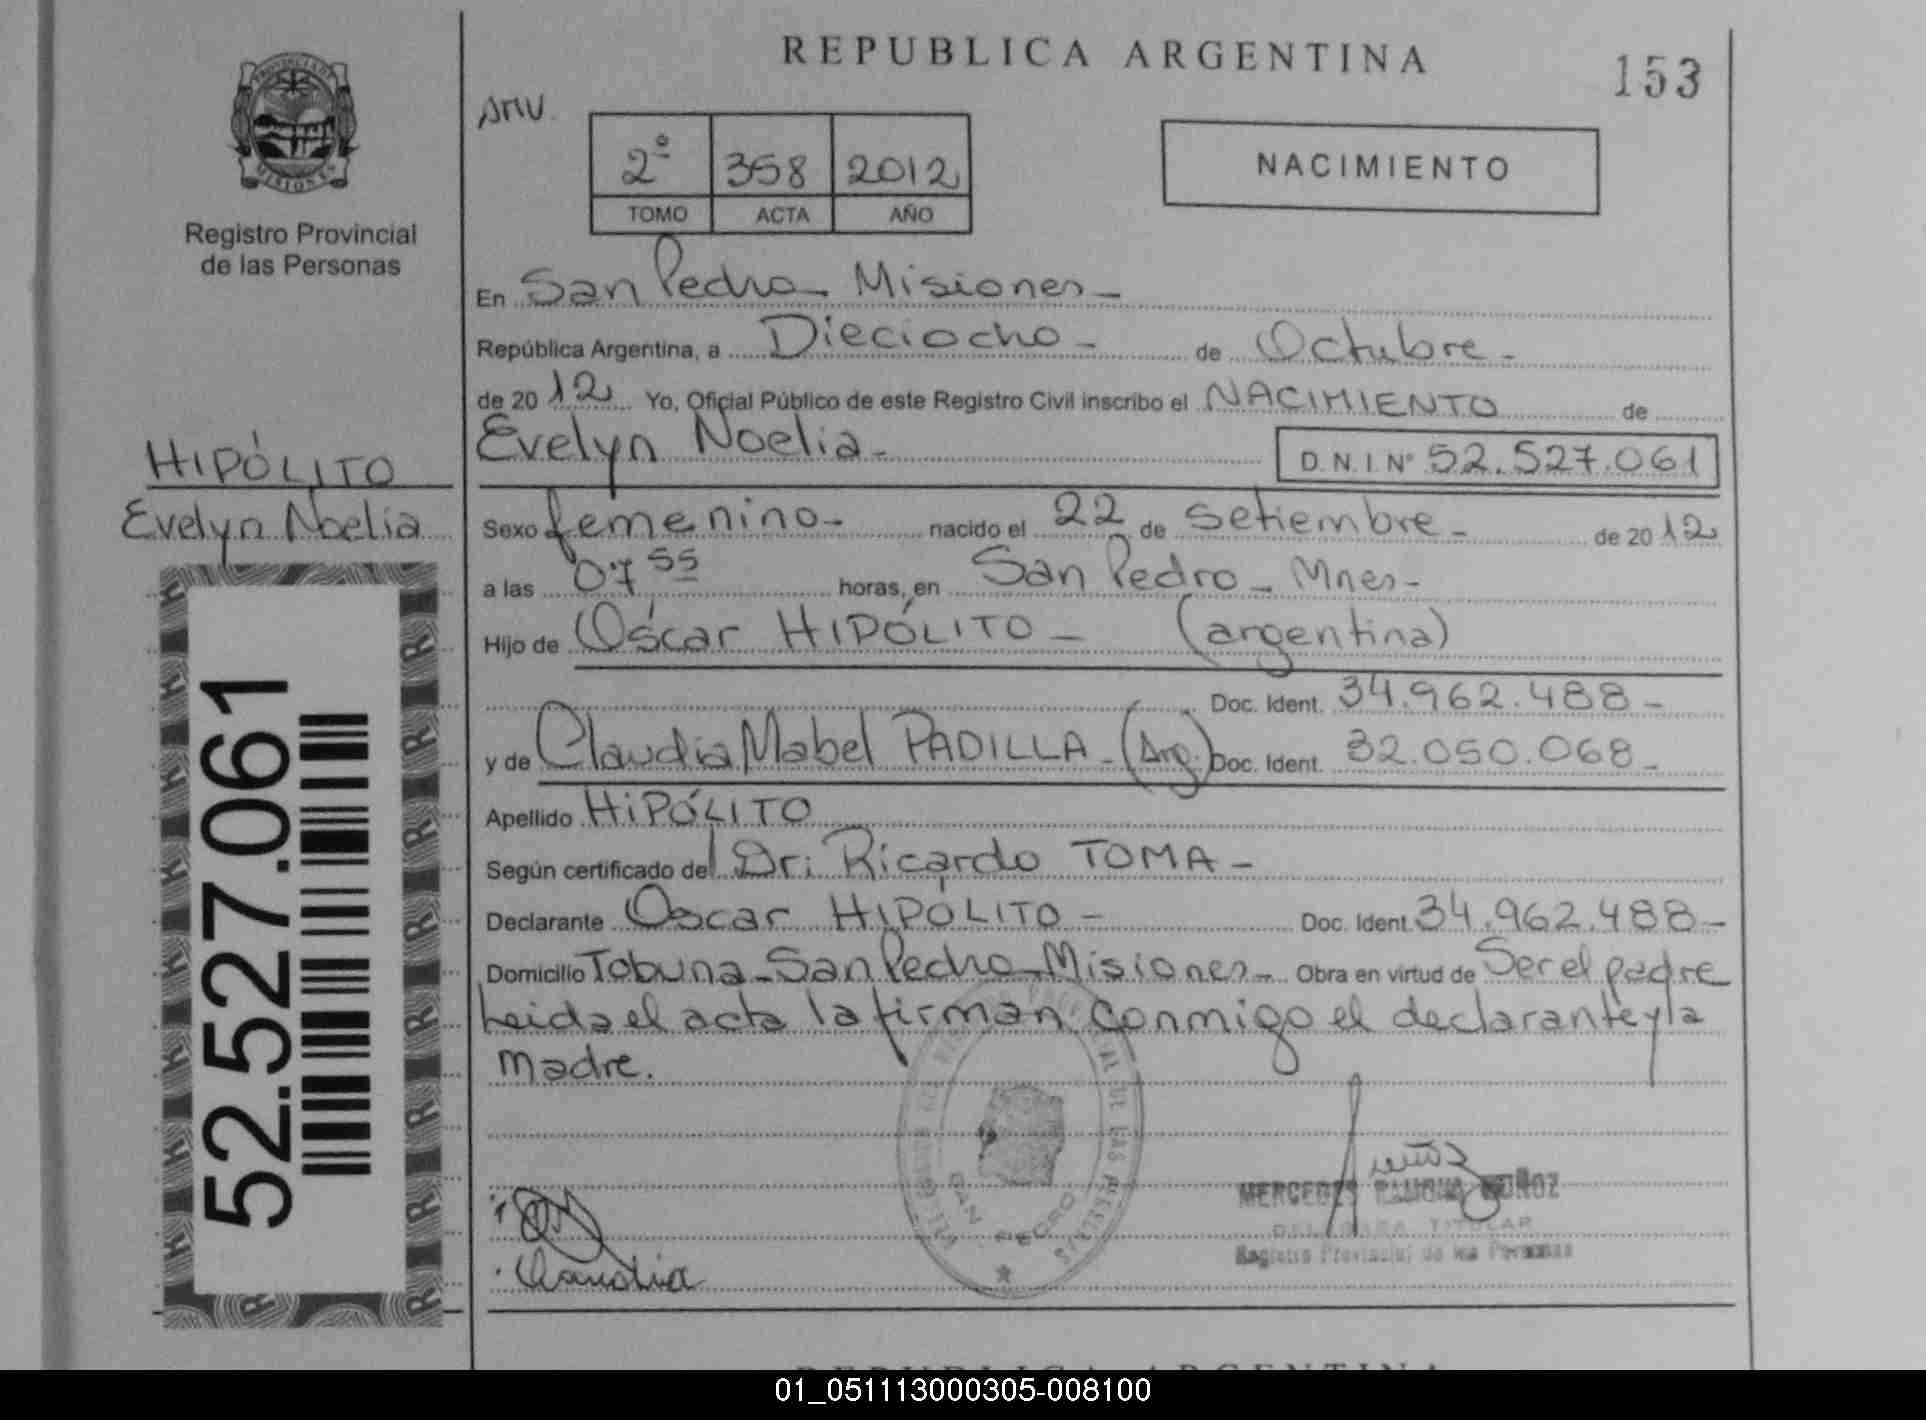 REPUBLICA ARGENTINA
153
PROVINCIA DE
MISIONES
Registro Provincial
de las Personas
2º 358 2012
TOMO ACTA AÑO
NACIMIENTO
En San Pedro - Misiones -
República Argentina, a Dieciocho - de Octubre -
de 2012 Yo, Oficial Público de este Registro Civil inscribo el NACIMIENTO de
Evelyn Noelia - D.N.I. Nº 52.527.061
HIPÓLITO
Evelyn Noelia
Sexo femenino - nacido el 22 de Setiembre - de 2012
a las 07 55 horas, en San Pedro - Mnes -
Hijo de Oscar HIPÓLITO - (argentina)
Doc. Ident. 34.962.488 -
y de Claudia Mabel PADILLA - (Arg.) Doc. Ident. 32.050.068 -
Apellido HIPÓLITO
Según certificado del Dr. Ricardo TOMA -
Declarante Oscar HIPÓLITO - Doc. Ident. 34.962.488 -
Domicilio Tobuna - San Pedro - Misiones - Obra en virtud de Ser el padre
Leida el acta la firman conmigo el declarante y la
madre.
52.527.061
SAN PEDRO
Claudia
MERCEDES RAMONA MUÑOZ
DELEGADA TITULAR
Registro Provincial de las Personas
REPUBLICA ARGENTINA
01_051113000305-008100